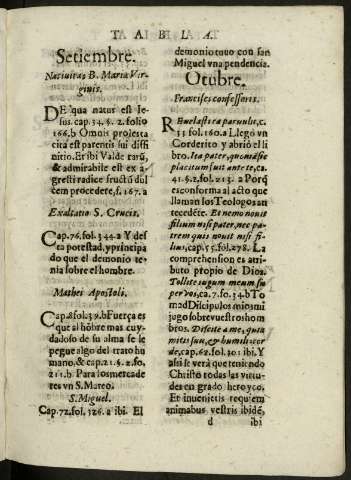 TA BI LA.
Setiembre.
Natiuitas B. Maria Vir-
ginis.
DE qua natus est Ie-
sus. cap. 34. §. 2. folio
166. b Omnis prolesta
cita est parentis sui diffi
nitio. Et ibi Valde rarū,
& admirabile est ex a-
gresti radice fructū dul
cem procedete, f. 167. a
Exaltatio S. Crucis.
Cap. 76. fol. 344. a Y des
ca potestad, y principa
do que el demonio te-
nia sobre el hombre.
Mathei Apostoli.
Cap. 8. fol. 39. b Fuerça es
que al hōbre mas cuy-
dadoso de su alma se le
pegue algo del trato hu
mano. & cap. 21. §. 2. fo.
211. b. Para los mercade
res vn S. Mateo.
S. Miguel.
Cap. 72. fol. 326. a ibi. El
demonio tuuo con san
Miguel vna pendencia.
Otubre.
Francisci confessoris.
REuelasti ea paruulis, c.
55 fol. 160. a Llegò vn
Corderito y abriò el li
bro. Ita pater, quoniā sic
placitum fuit ante te, ca.
41. §. 2. fol. 213. a Por q̄
es conforma al acto que
llaman los Teologos an
tecedēte. Et nemo nouit
filium nisi pater, nec pa-
trem quis nouit nisi fi-
lius, cap. 55. fol. 278. La
comprehension es atri-
buto propio de Dios.
Tollite iugum meum su
per vos, ca. 7. fo. 34. b To
mad Dicipulos mios mi
jugo sobre vuestros hom
bros. Discite a me, quia
mitis sum, & humilis cor
de, cap. 62. fol. 301 ibi. Y
assi se verà que teniendo
Christo todas las virtu-
des en grado heroyco.
Et inuenietis requiem
animabus vestris ibidē,
d ibi